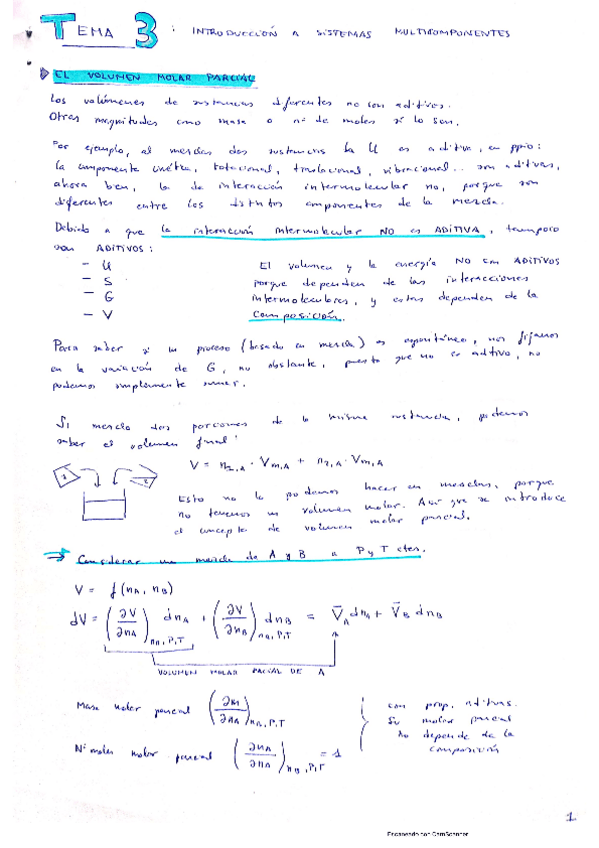 TEMA 3: INTRODUCCIÓN A SISTEMAS MULTICOMPONENTES
EL VOLUMEN MOLAR PARCIAL
Los volúmenes de sustancias diferentes no son aditivos.
Otras magnitudes como masa o nº de moles sí lo son.
Por ejemplo, al mezclar dos sustancias la U es aditiva, en ppio:
la componente cinética, rotacional, traslacional, vibracional... son aditivas,
ahora bien, la de interacción intermolecular no, porque son
diferentes entre los distintos componentes de la mezcla.
Debido a que la interacción intermolecular NO es ADITIVA, tampoco
son ADITIVOS:
- U
- S
- G
- V
El volumen y la energía NO son ADITIVOS
porque dependen de las interacciones
intermoleculares, y estas dependen de la
composición.
Para saber si un proceso (basado en mezcla) es espontáneo, nos fijamos
en la variación de G, no obstante, puesto que no es aditivo, no
podemos simplemente sumar.
Si mezclo dos porciones de la misma sustancia, podemos
saber el volumen final:
V = n1,A · Vm,A + n2,A · Vm,A
1
2
Esto no lo podemos hacer en mezclas, porque
no tenemos un volumen molar. Así que se introduce
el concepto de volumen molar parcial.
→ Considerar una mezcla de A y B a P y T ctes.
V = f(nA, nB)
dV = (∂V/∂nA)nB,P,T dnA + (∂V/∂nB)nA,P,T dnB = V̄A dnA + V̄B dnB
VOLUMEN MOLAR PARCIAL DE A
Masa molar parcial (∂m/∂nA)nB,P,T
Nº moles molar parcial (∂nA/∂nA)nB,P,T = 1
son prop. aditivas.
Su molar parcial
no depende de la
composición
1
Escaneado con CamScanner